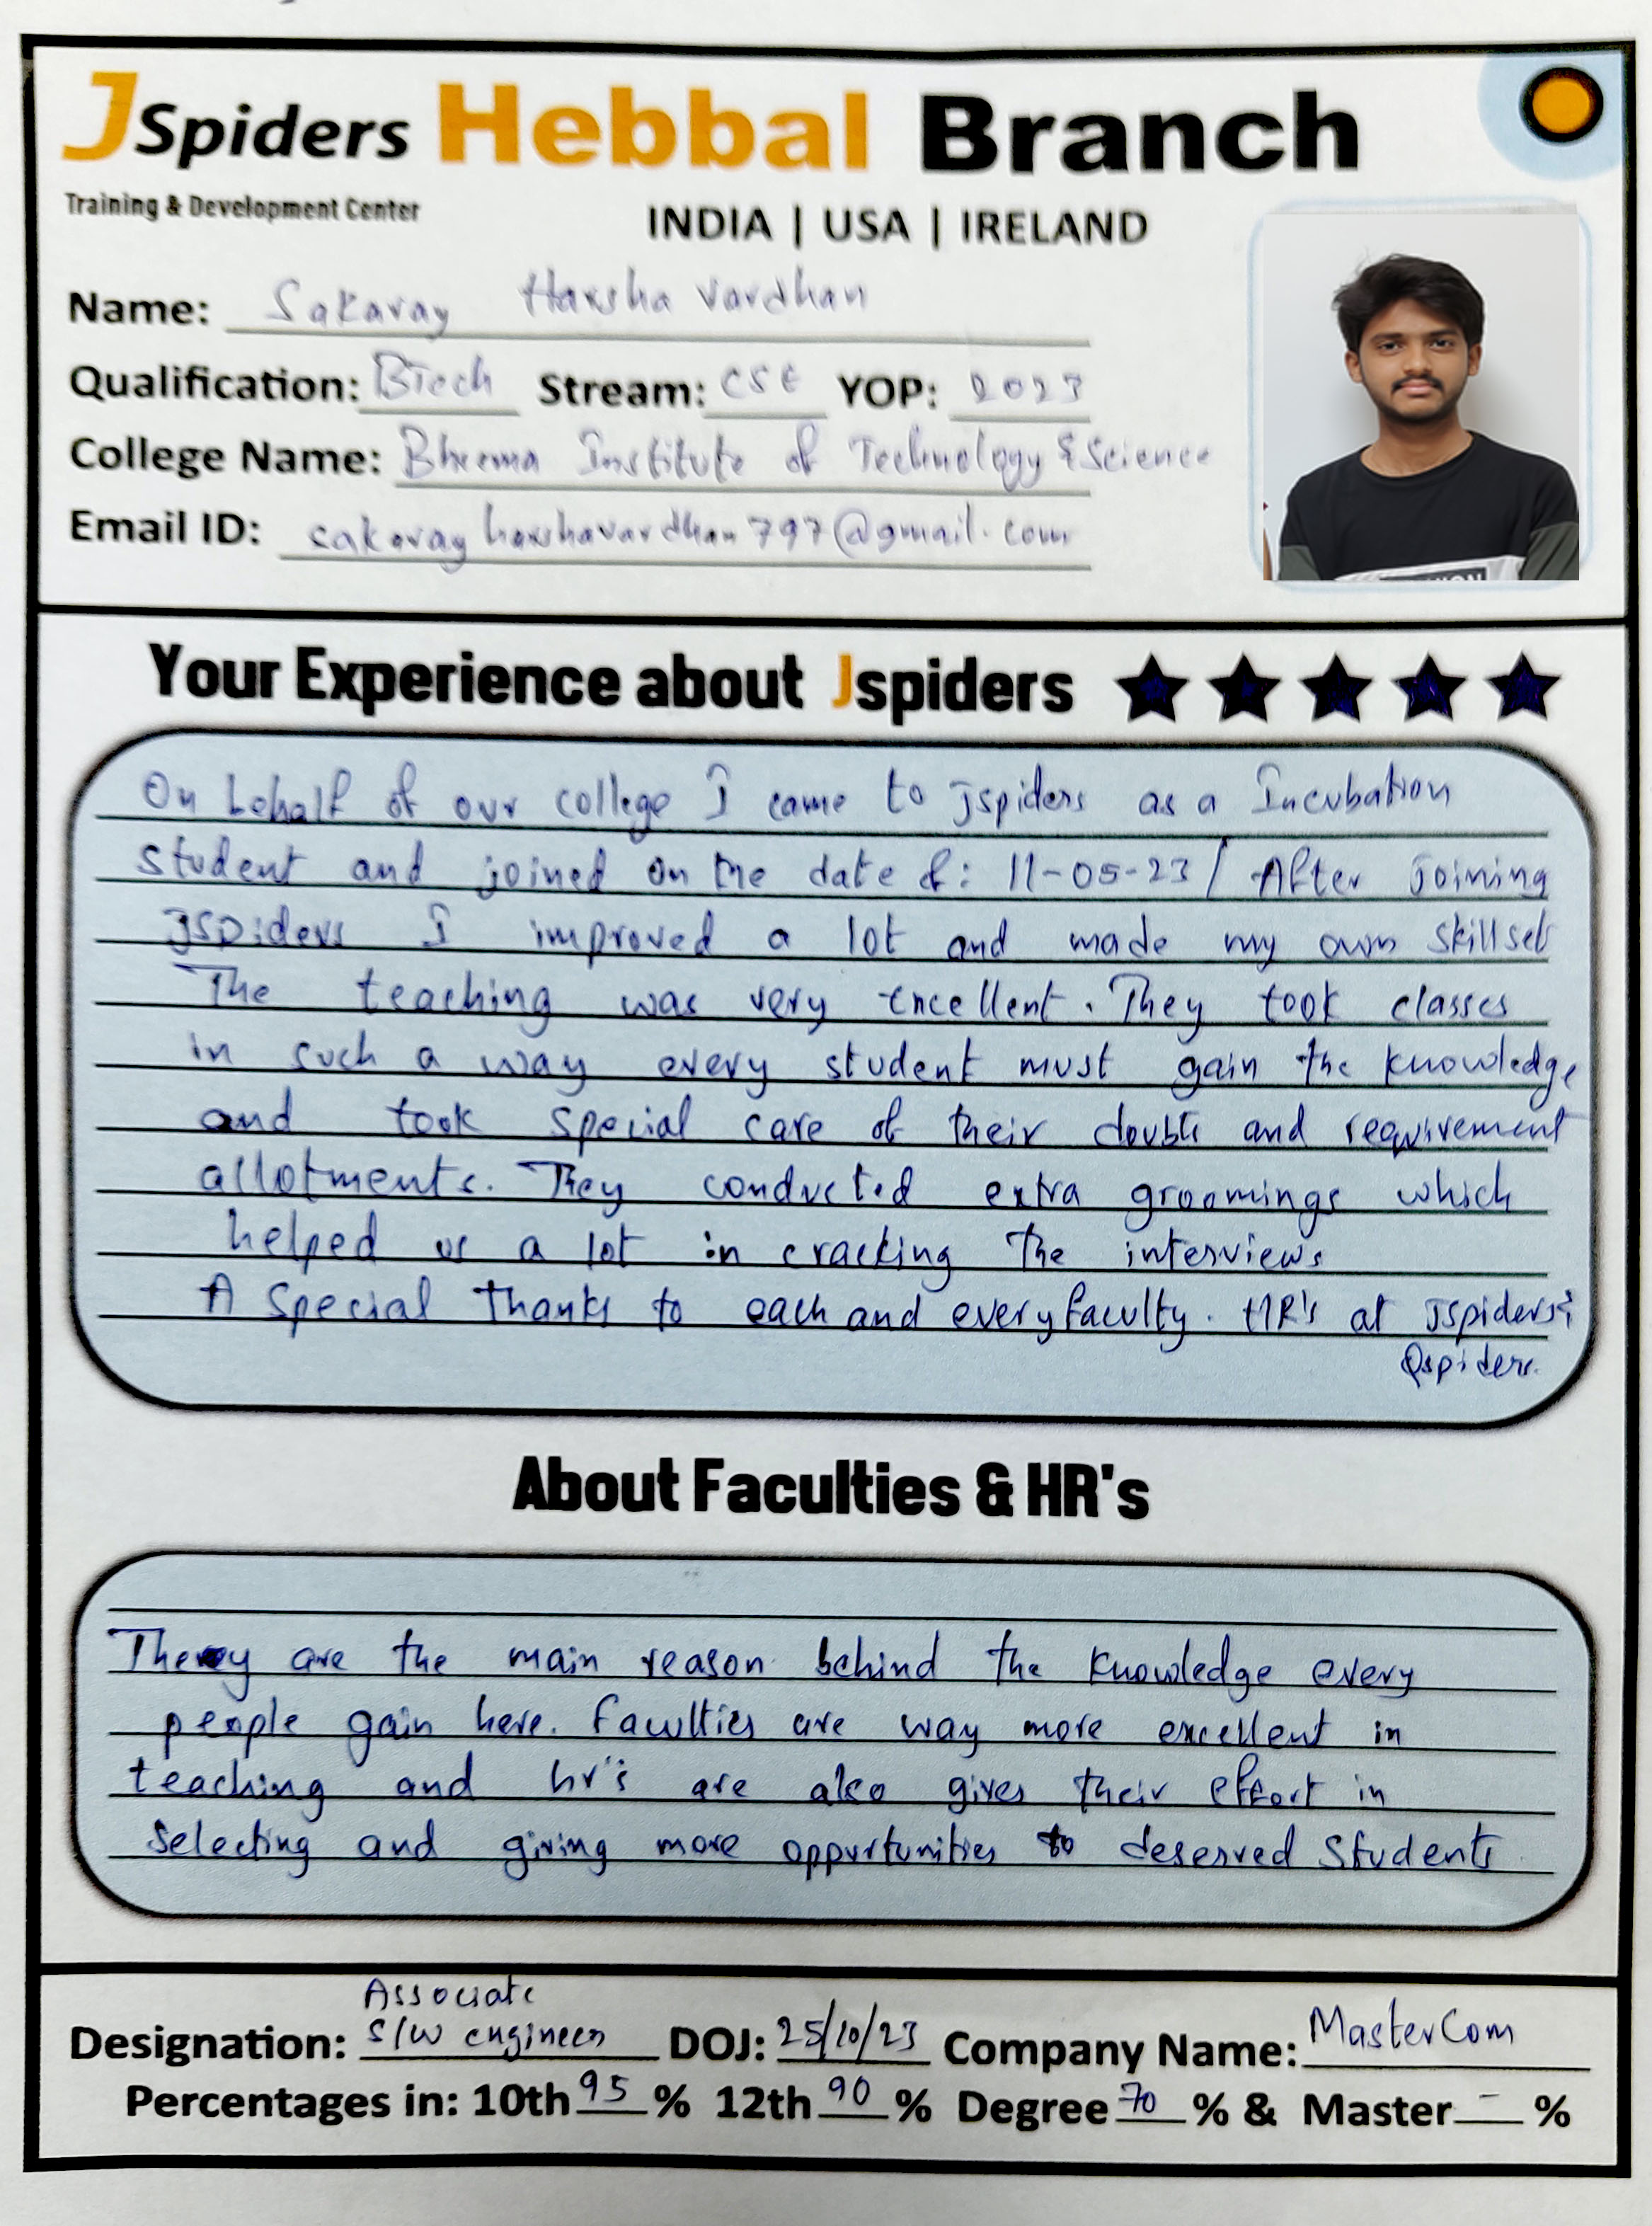 JSpiders Hebbal Branch
Training & Development Center
INDIA | USA | IRELAND
Name: Sakaray Harsha Vardhan
Qualification: BTech Stream: CSE YOP: 2023
College Name: Bheema Institute of Technology & Science
Email ID: sakarayharshavardhan797@gmail.com
Your Experience about Jspiders
On behalf of our college I came to Jspiders as a Incubation
student and joined on the date of: 11-05-23/ After joining
JSpiders I improved a lot and made my own skillset
The teaching was very Excellent. They took classes
in such a way every student must gain the knowledge
and took special care of their doubts and requirement
allotments. They conducted extra groomings which
helped us a lot in cracking the interviews
A Special thanks to each and every faculty. HR's at Jspiders &
Qspiders.
About Faculties & HR's
They are the main reason behind the knowledge every
people gain here. faculties are way more excellent in
teaching and hr's are also gives their effort in
selecting and giving more opportunities to deserved students
Associate
Designation: S/W engineer DOJ: 25/10/23 Company Name: MasterCom
Percentages in: 10th 95 % 12th 90 % Degree 70 % & Master - %